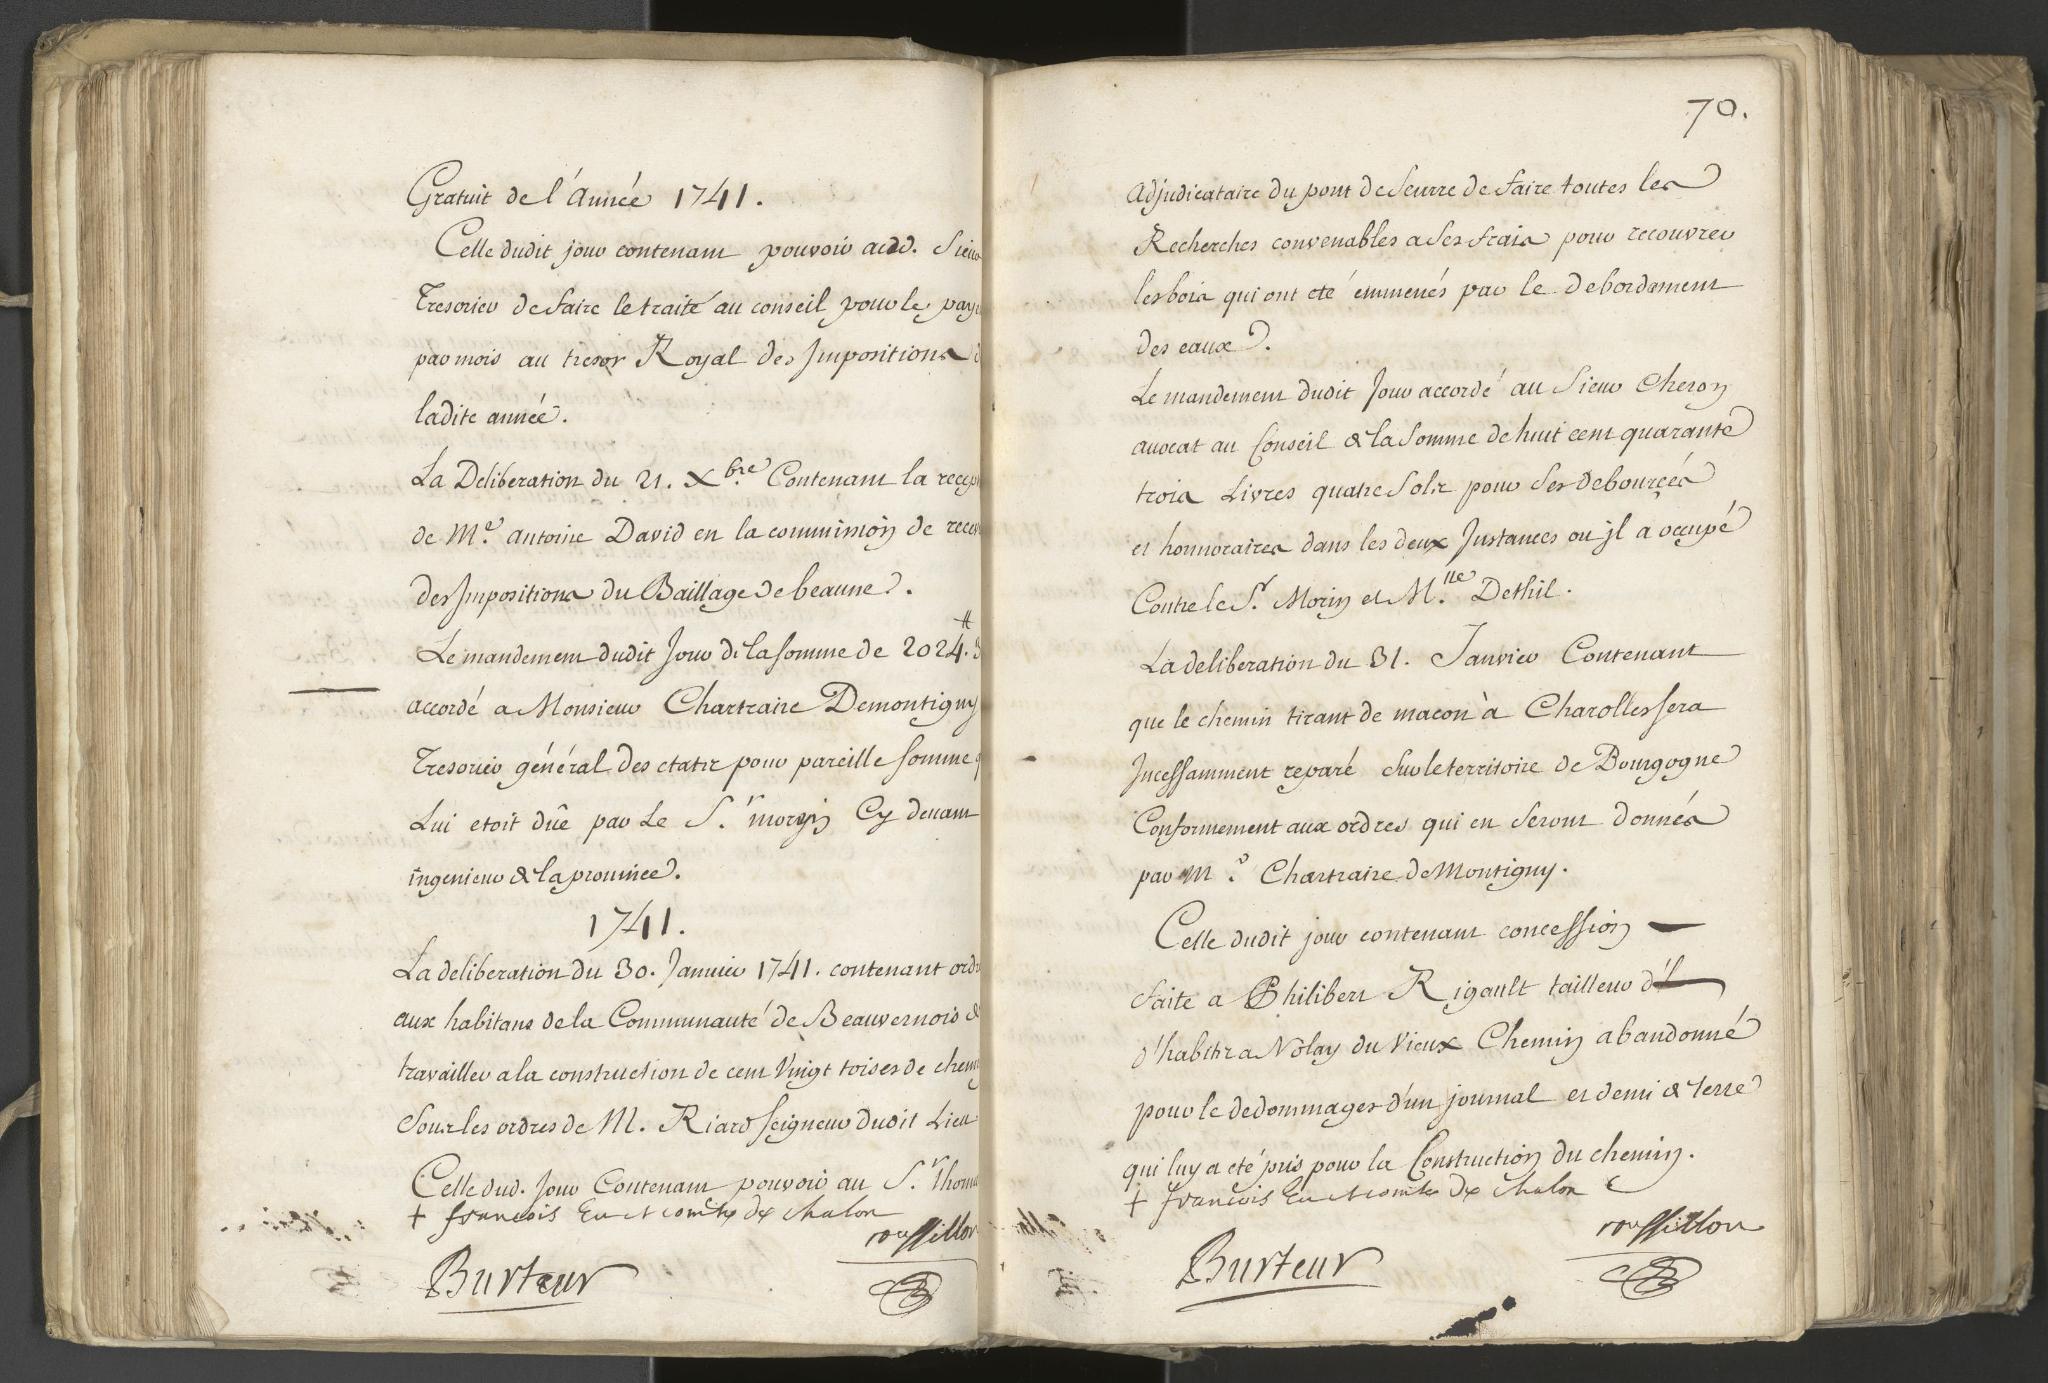 Gratuit de l'Année 1741.
Celle dudit jour contenant pouvoir aud. Sieur
Tresorier de faire le traité au conseil pour le pay
par mois au tresor Royal des Impositions d
ladite année.
La Deliberation du 21. Xbre. Contenant la recep
de Me. antoine David en la commission de recev
des Impositions du Baillage de beaune.
Le mandement dudit Jour de la somme de 2024.#
accordé a Monsieur Chartraire Demontigny
Tresorier général des etats pour pareille somme q
Lui etoit dûe par Le Sr. morin Cy devant
ingenieur de la province.
1741.
La deliberation du 30. Janvier 1741. contenant ordr
aux habitans de la Communauté de Beauvernois de
travailler a la construction de cent vingt toises de chem
Sous les ordres de M. Riard seigneur dudit Lieu
Celle dud. Jour Contenant pouvoir au Sr. thoma
+ françois Eu et comte de chalon
roussillon
Burteur
70.
Adjudicataire du pont de Seurre de faire toutes les
Recherches convenables a ses frais pour recouvrer
les bois qui ont eté emmenés par le debordement
des eaux.
Le mandement dudit Jour accordé au Sieur Cheron
avocat au Conseil de la somme de huit cent quarante
trois Livres quatre Sols pour ses debourcés
et honnoraires dans les deux Instances ou il a occupé
Contre le Sr. Morin et Mlle. Dethil.
La deliberation du 31. Janvier Contenant
que le chemin tirant de macon à Charolles sera
Incessamment reparé sur le territoire de Bourgogne
Conformement aux ordres qui en seront donnés
par Mr. Chartraire de Montigny.
Celle dudit jour contenant concession
faite a Philibert Rigault tailleur d'
d'habits a Nolay du vieux Chemin abandonné
pour le dedommager d'un journal et demi de terre
qui luy a eté pris pour la Construction du chemin.
+ françois Eu et comte de chalon
roussillon
Burteur